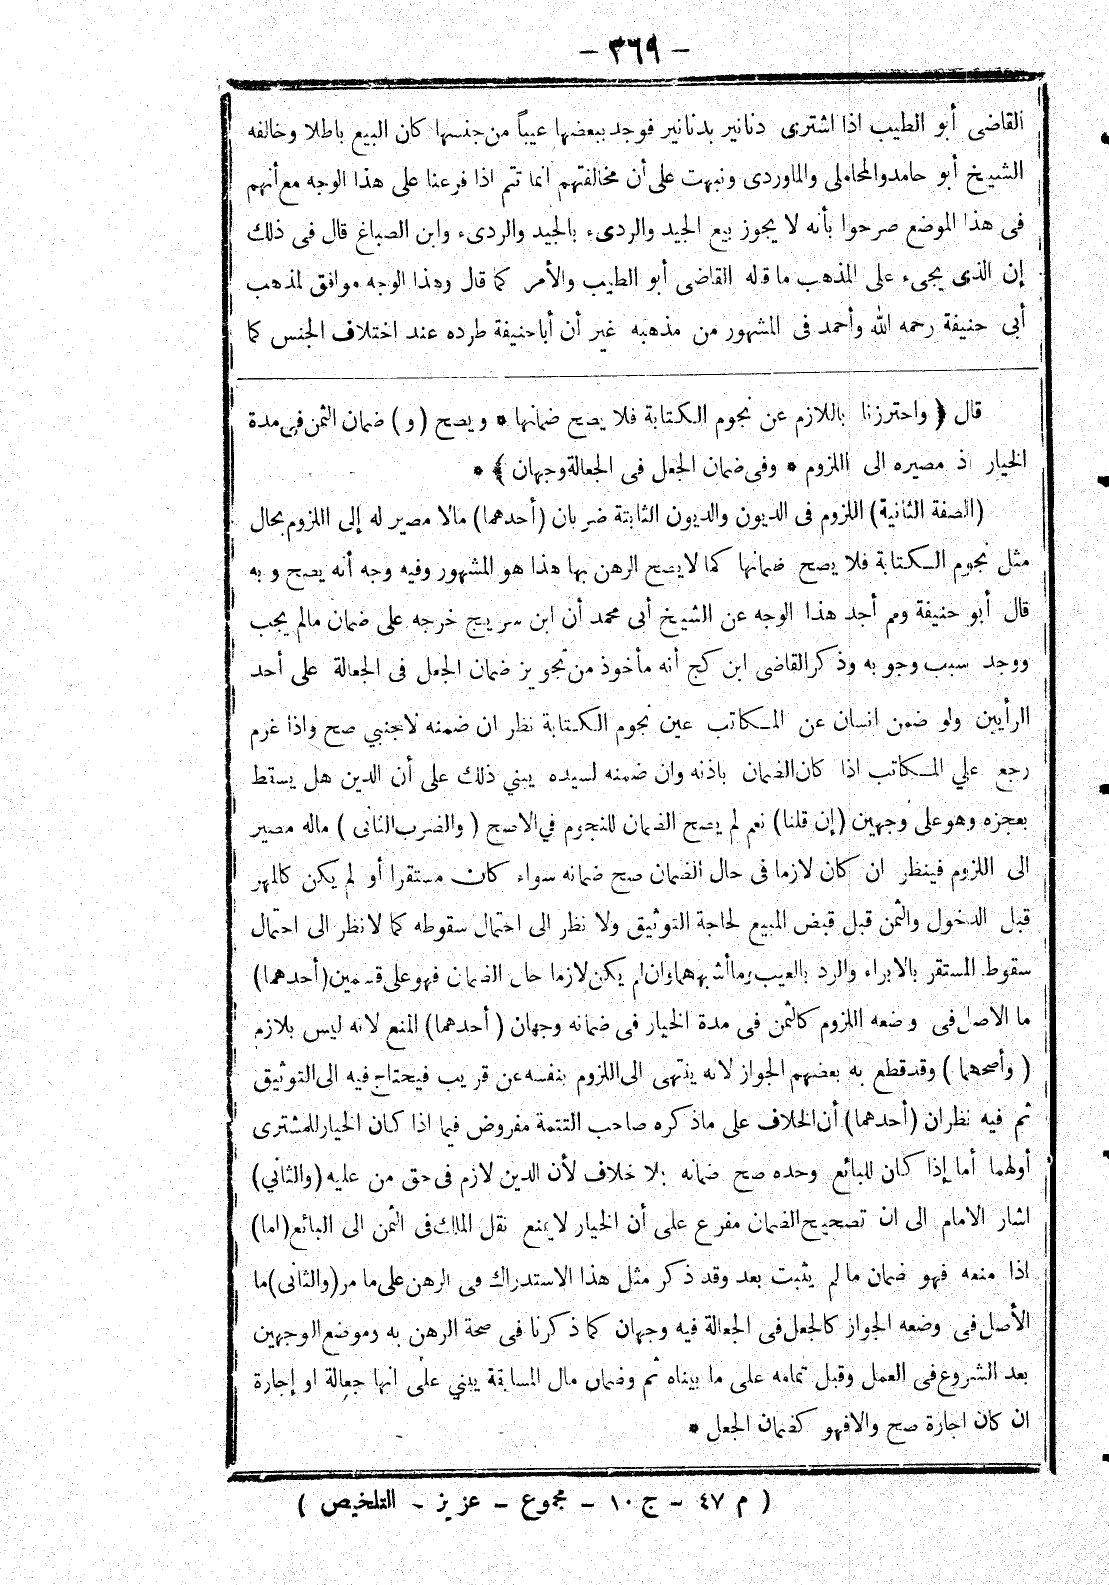 - ٣٦٩ -
القاضى أبو الطيب اذا اشترى دنانير بدنانير فوجد ببعضها عيباً من جنسها كان البيع باطلا وخالفه
الشيخ أبو حامد والمحاملى والماوردى ونبهت على أن مخالفتهم انما تتم اذا فرعنا على هذا الوجه مع أنهم
فى هذا الموضع صرحوا بأنه لا يجوز بيع الجيد والردىء بالجيد والردىء وابن الصباغ قال فى ذلك
إن الذى يجىء على المذهب ما قاله القاضى أبو الطيب والأمر كما قال وهذا الوجه موافق لمذهب
أبى حنيفة رحمه الله وأحمد فى المشهور من مذهبه غير أن أبا حنيفة طرده عند اختلاف الجنس كما
قال ﴿ واحترزنا باللازم عن نجوم الكتابة فلا يصح ضمانها * ويصح (و) ضمان الثمن فى مدة
الخيار اذ مصيره الى اللزوم * وفى ضمان الجعل فى الجعالة وجهان ﴾ *
(الصفة الثانية) اللزوم فى الديون والديون الثابتة ضربان (أحدهما) مالا مصير له إلى اللزوم بحال
مثل نجوم الكتابة فلا يصح ضمانها كما لا يصح الرهن بها هذا هو المشهور وفيه وجه أنه يصح وبه
قال أبو حنيفة ومم أجد هذا الوجه عن الشيخ أبى محمد أن ابن سريج خرجه على ضمان مالم يجب
ووجد سبب وجوبه وذكر القاضى ابن كج أنه مأخوذ من تجويز ضمان الجعل فى الجعالة على أحد
الرأيين ولو ضمن انسان عن المكاتب عين نجوم الكتابة نظر ان ضمنه لاجنبي صح واذا غرم
رجع علي المكاتب اذا كان الضمان باذنه وان ضمنه لسيده يبني ذلك على أن الدين هل يسقط
بعجزه وهو على وجهين (إن قلنا) نعم لم يصح الضمان للنجوم في الاصح (والضرب الثانى) ماله مصير
الى اللزوم فينظر ان كان لازما فى حال الضمان صح ضمانه سواء كان مستقرا أو لم يكن كالمهر
قبل الدخول والثمن قبل قبض المبيع لحاجة التوثيق ولا نظر الى احتمال سقوطه كما لا نظر الى احتمال
سقوط المستقر بالابراء والرد بالعيب وما أشبههما وان لم يكن لازما حال الضمان فهو على قسمين (أحدهما)
ما الاصل فى وضعه اللزوم كالثمن فى مدة الخيار فى ضمانه وجهان (أحدهما) المنع لانه ليس بلازم
(وأصحهما) وقد قطع به بعضهم الجواز لانه ينتهى الى اللزوم بنفسه عن قريب فيحتاج فيه الى التوثيق
ثم فيه نظران (أحدهما) أن الخلاف على ماذكره صاحب التتمة مفروض فيما اذا كان الخيار للمشترى
أولهما أما إذا كان للبائع وحده صح ضمانه بلا خلاف لأن الدين لازم فى حق من عليه (والثاني)
اشار الامام الى ان تصحيح الضمان مفرع على أن الخيار لا يمنع نقل الملك فى الثمن الى البائع (اما)
اذا منعه فهو ضمان ما لم يثبت بعد وقد ذكر مثل هذا الاستدراك فى الرهن على ما مر (والثانى) ما
الأصل فى وضعه الجواز كالجعل فى الجعالة فيه وجهان كما ذكرنا فى صحة الرهن به وموضع الوجهين
بعد الشروع فى العمل وقبل تمامه على ما بيناه ثم وضمان مال المسابقة يبني على انها جعالة او إجارة
ان كان اجارة صح والا فهو كضمان الجعل *
( م ٤٧ - ج ١٠ - مجموع - عزيز - التلخيص )